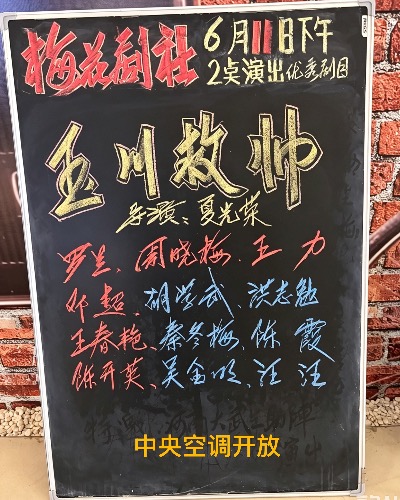 梅花剧社
6月11日下午
2点演出优秀剧目
玉川救帅
导演、夏光荣
罗兰、周晓梅、王力
邓超、胡学武、洪志勉
王春艳、秦冬梅、陈霞
陈开英、吴金明、汪汪
中央空调开放